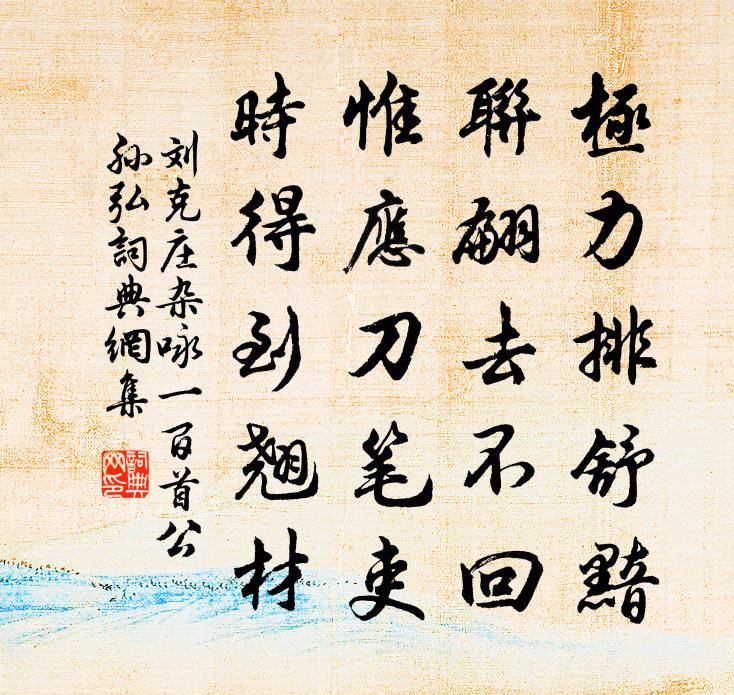 極力排舒黯
聯翩去不回
惟應刀笔吏
時得到翘材
刘克庄杂咏一百首公
孙弘詞典網集
詞典网印